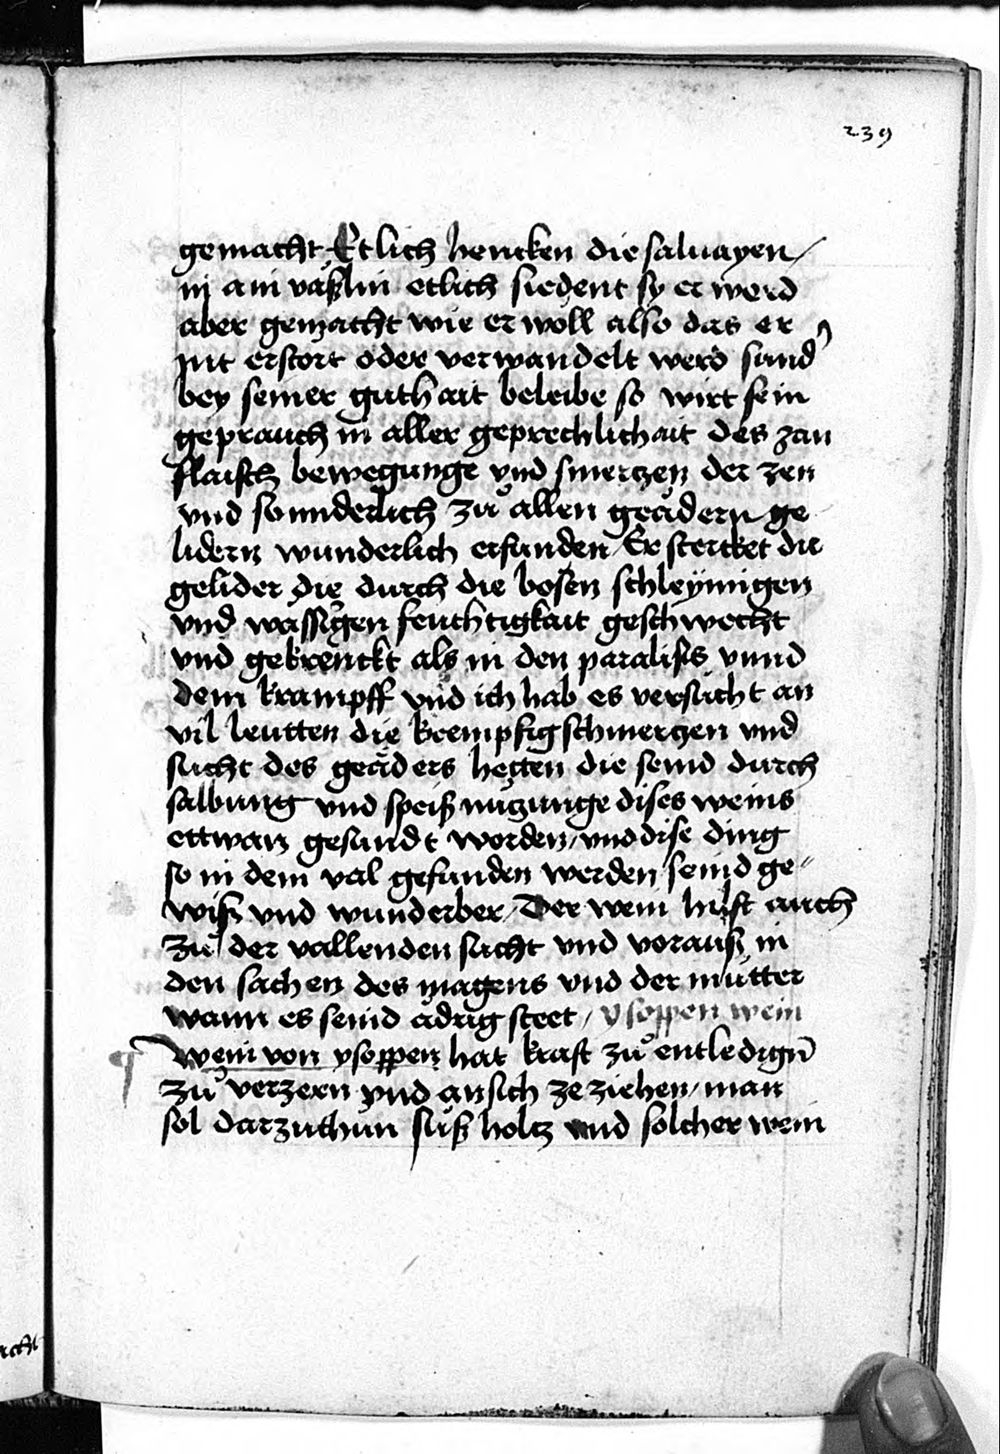 239
gemacht Etlich hencken die saluayen /
in ain väßlin etlich siedent sy er werd
aber gemacht wie er woll also das er
nit erstort oder verwandelt werd sund̕
bey seiner guthait beleibe so wirt sein
geprauch in aller geprechlichait des zan
flaisch bewegunge vnd smerczen der zen
vnd sonnderlich zů allen geädern ge
lidern wunderlich erfunden / Er stercket die
gelider die durch die bosen schleymigen
vnd wässigen feuchtigkait geschwecht
vnd gekrenckt als in den paralisis vnnd
dem krampff vnd ich hab es versucht an
vil leutten die krempfig schmerczen vnd
sucht des geäders hetten die seind durch
salbung vnd speiß nuczunge dises weins
ettwan gesundt worden / vnd dise ding
so in dem val gefunden werden seind ge⸗
wiß vnd wunderber / Der wein hilft auch
zů der vallenden sucht vnd vorauß in
den sachen des magens vnd der mutter
wann es seind adrig steet / ysoppen wein
¶ Wein von ysoppen hat kraft zů entledign̄
zů verzern vnd an sich ze ziehen / man
sol darzuthun süß holcz vnd solcher wein